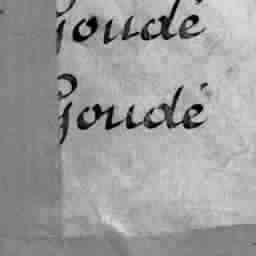 Goudé
Goudé